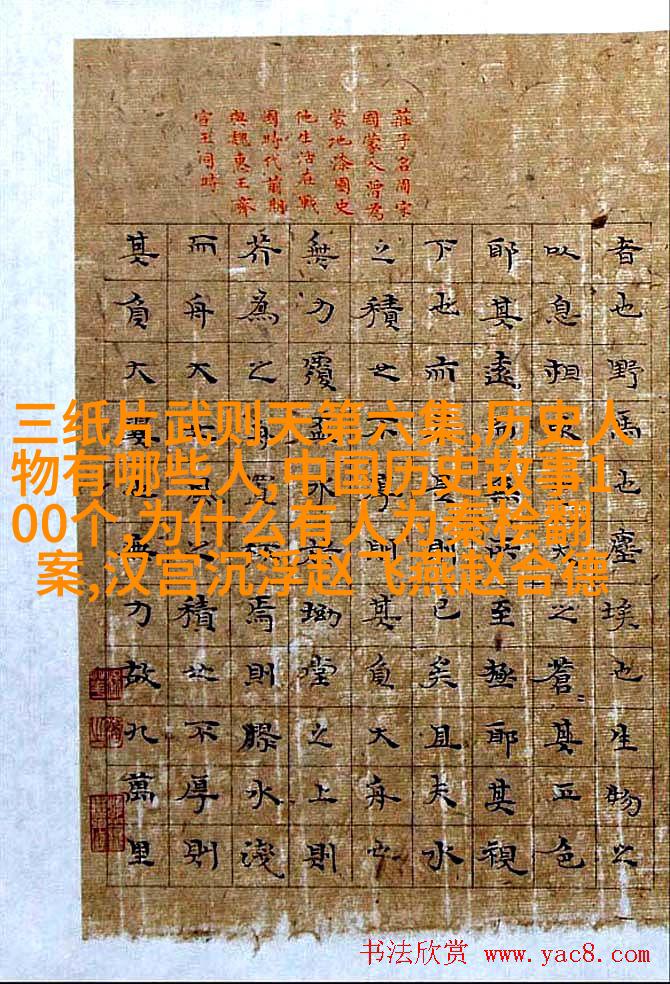 莊子名周宋
國蒙人曾為
蒙地漆園史
他生活在戰
國時代前期
與魏惠王齊
宣王同時
者也野馬也塵埃也生物之
以息相吹也天之蒼其正色
耶其遠而無所至極耶其視
下也而若是則已矣且夫水
之積也不厚則其負大舟也
無力覆盃水於坳堂之上則
芥為之舟置杯焉則膠水淺
而舟大也風之積也不厚則
其負大翼也無力故九萬里
三纸片武则天第六集,历史人
物有哪些人,中国历史故事1
00个,为什么有人为秦桧翻
案,汉宫沉浮赵飞燕赵合德
书法欣赏 www.yac8.com